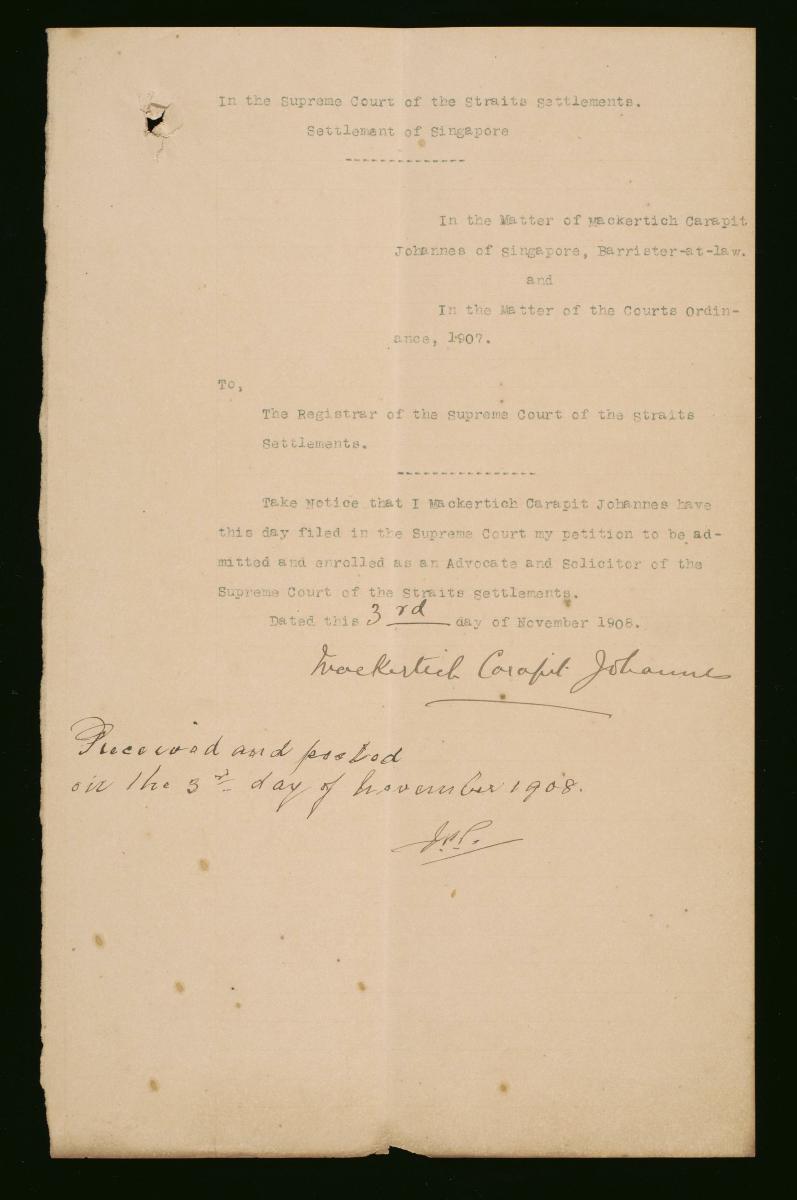 In the Supreme Court of the Straits Settlements.
Settlement of Singapore
--------------
In the Matter of Mackertich Carapit
Johannes of Singapore, Barrister-at-law.
and
In the Matter of the Courts Ordin-
ance, 1907.
To,
The Registrar of the Supreme Court of the Straits
Settlements.
----------------
Take Notice that I Mackertich Carapit Johannes have
this day filed in the Supreme Court my petition to be ad-
mitted and enrolled as an Advocate and Solicitor of the
Supreme Court of the Straits Settlements.
Dated this 3rd day of November 1908.
Mackertich Carapit Johannes
Received and posted
on the 3rd day of November 1908.